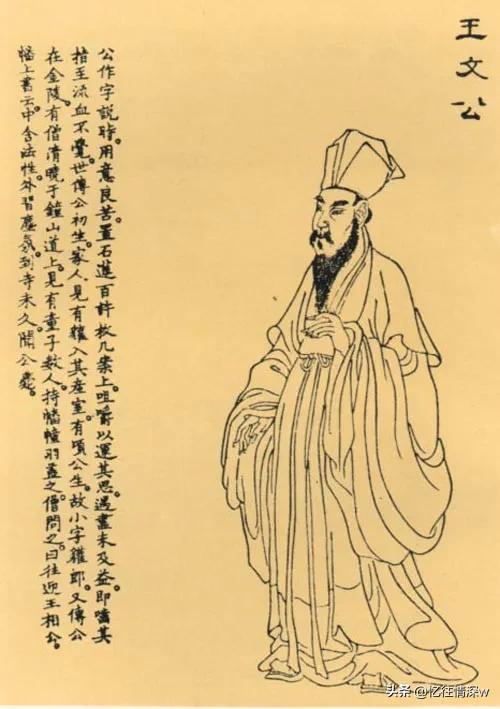 王文公
公作字說時。用意良苦。置石蓮百許枚几案上。咀嚼以運其思。遇盡未及益。即嚙其
指至流血不覺。世傳公初生。家人見有獾入其產室。有頃公生。故小字獾郎。又傳公
在金陵。有僧清曉于鐘山道上。見有童子數人。持幡幢羽蓋之。僧問之。曰往迎王相公。
幡上書云。中含法性。外習塵氛。到寺未久。聞公薨。
头条 @忆往情深w